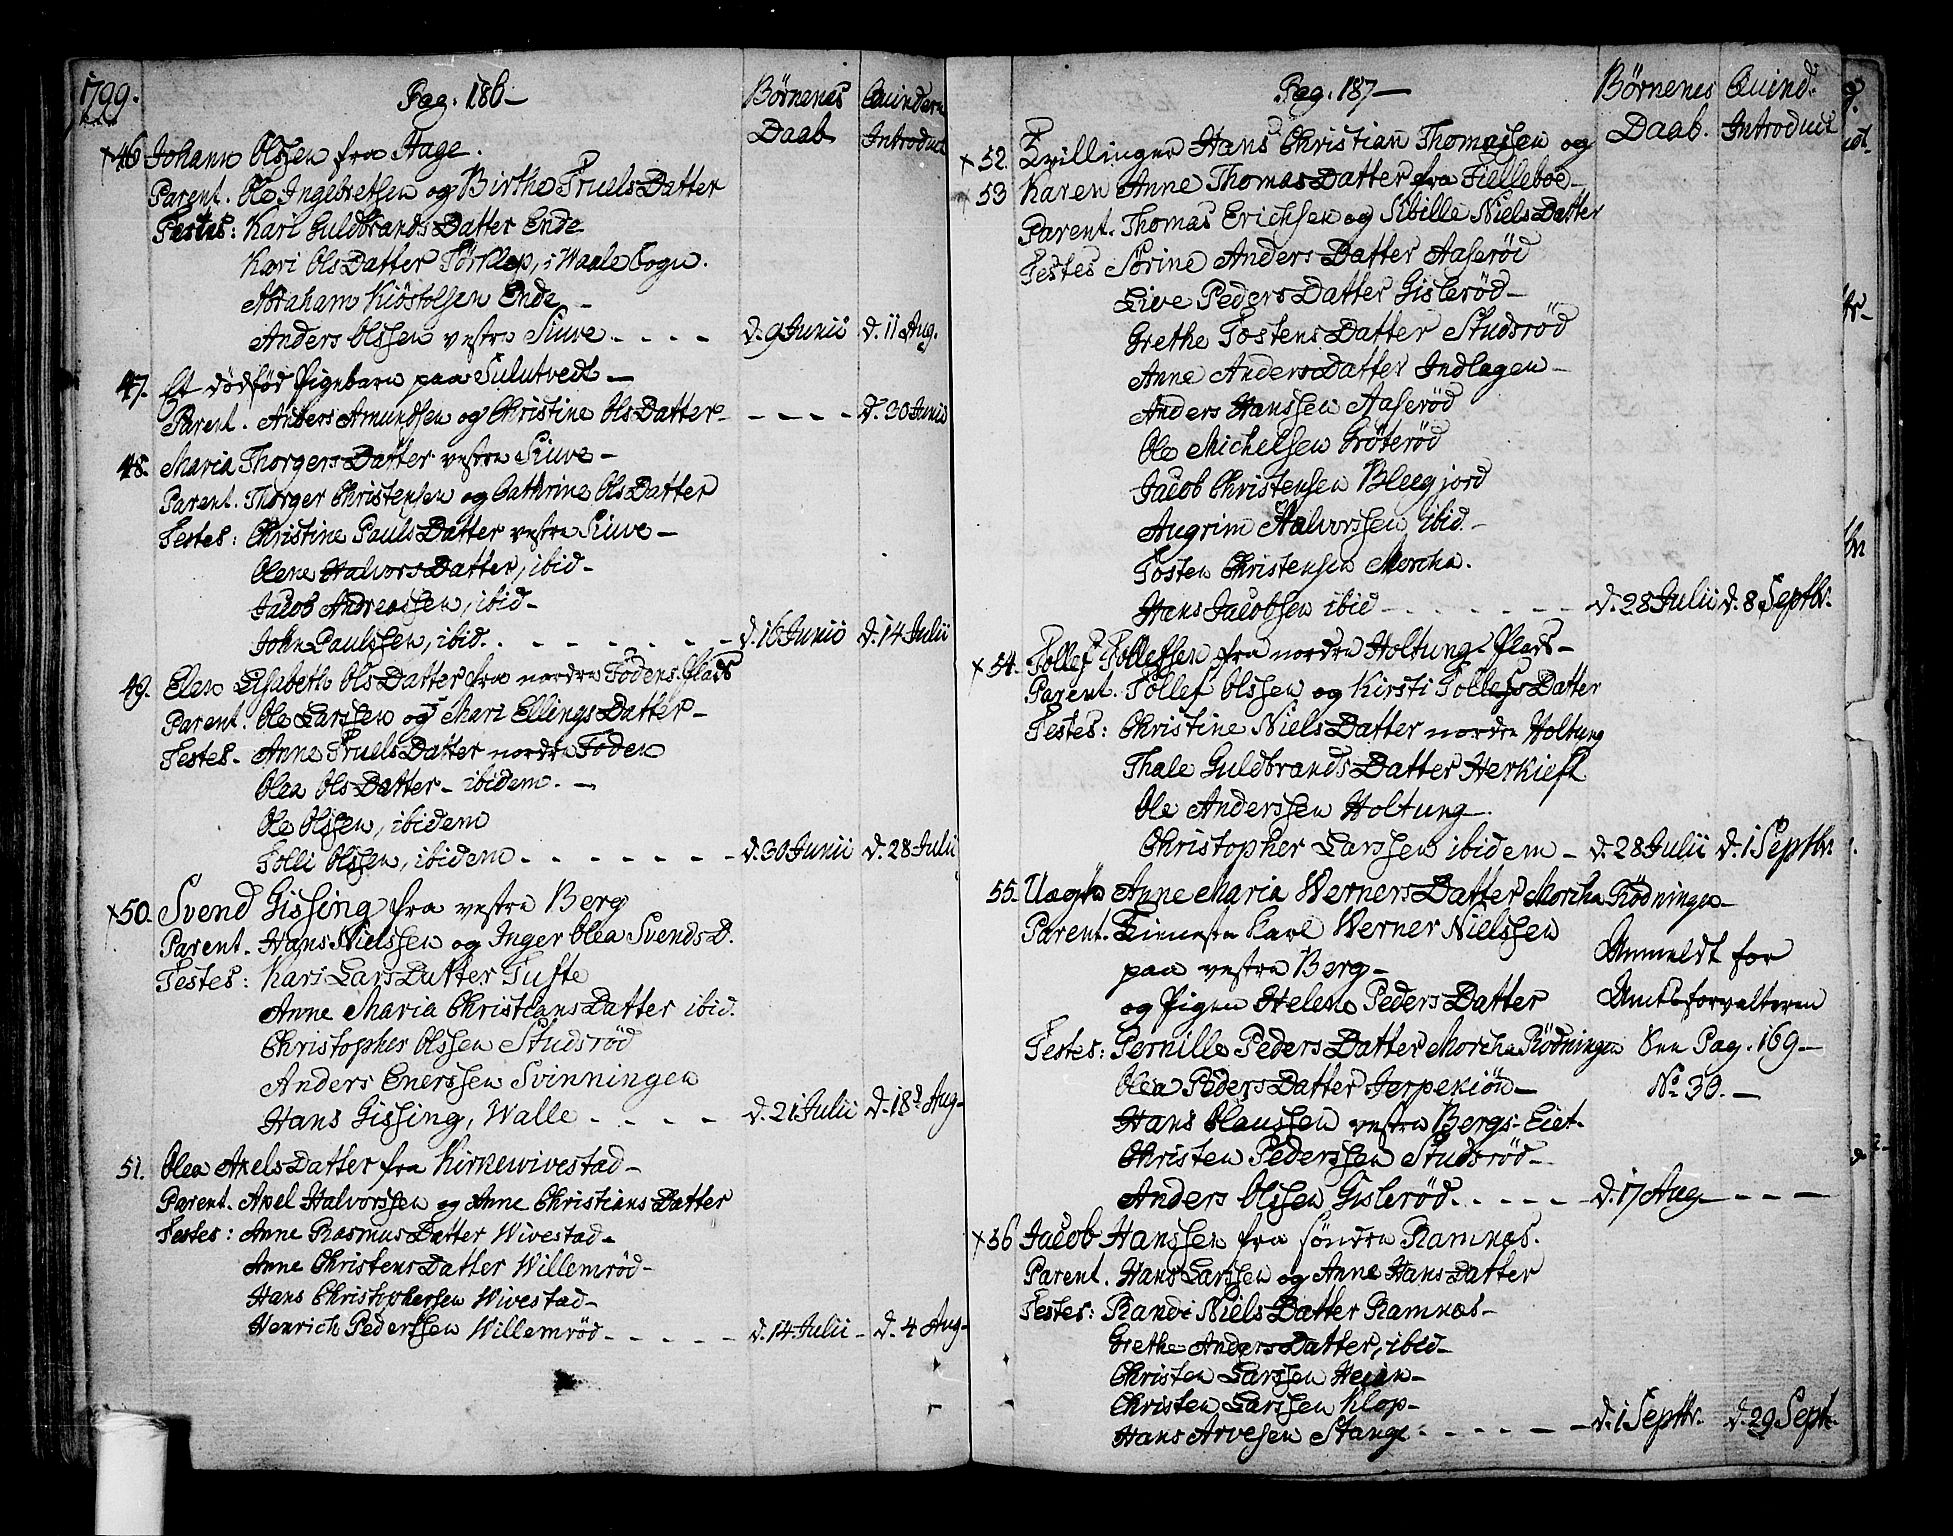 1799.
Pag. 186-
Børnenes
Daab
Quindern
Introduct
×46 Johann Olssen fra Hage.
Parent. Ole Ingebretsen og Birthe TruelsDatter
Testes: Kari GuldbrandsDatter Ende
Kari OlsDatter, i Waale Sogn.
Abraham Kiöstolsen Ende -
Anders Olssen vestre Siuve. - - - d. 9 Junii d. 11 Aug.
47. Et dødfød Pigebarn paa Sulutvedt -
Parent. Anders Amundsen og Christine OlsDatter - - - - d. 30 Junii
48. Maria ThorgersDatter vestre Siuve -
Parent. Thorger Christensen og Cathrine OlsDatter
Testes: Christine PaulsDatter vestre Siuve -
Olene HalvorsDatter, ibid -
Jacob Andreassen, ibid -
John Paulssen, ibid. - - - - d. 16 Junii d. 14 Julii
49. Elen Elisabeth OlsDatter fra nordre Fodens Plads
Parent. Ole Larssen og Mari EllingsDatter -
Testes - Anne TruelsDatter nordre Foden
Olea OlsDatter - ibidem. -
Ole Olssen, ibidem
Tolli Olssen, ibidem - - - - - d. 30 Junii d. 28 Julii
×50. Svend Gissing fra vestre Berg
Parent. Hans Nielssen og Inger Olea SvendsD.
Testes: Kari LarsDatter Tufte
Anne Maria ChristiansDatter ibid.
Christopher Olssen Studsröd
Anders Enerssen Svinningen
Hans Gissing, Walle - - - - d. 21 Julii d. 18d Aug -
51. Olea AxelsDatter fra Kirkewivestad -
Parent. Axel Halvorssen og Anne ChristiansDatter
Testes: Anne RasmusDatter Wivestad -
Anne ChristensDatter Willemröd -
Hans Christophersen Wivestad -
Henrich Pederssen Willemröd - - - - d. 14 Julii - d. 4 Aug -
Pag. 187 -
Børnenes
Daab.
Quind.
Introduct
×52. Tvillinger Hans Christian Thomassen og
53 Karen Anne ThomasDatter fra Fielleboe -
Parent. Thomas Erichsen og Sibille NielsDatter
Testes Sörine AndersDatter Aaseröd
Live PedersDatter Gisleröd -
Grethe TostensDatter Studsröd
Anne AndersDatter Indlagen -
Anders Hanssen Aaseröd
Ole Michelsen Gröteröd
Jacob Christensen Bleegjord
Augrim Halvorssen ibid -
Tosten Christensen Morcha.
Hans Jacobsen ibid - - - - - d. 28 Julii d. 8 Septbr.
×54. Tollef Tollefsen fra nordre Holtungs Plads -
Parent. Tollef Olssen og Kirsti TollefsDatter
Testes: Christine NielsDatter nordre Holtung
Thale GuldbrandsDatter Herkieft
Ole Anderssen Holtung -
Christopher Larssen ibidem - d. 28 Julii d. 1 Septbr.
55. Uægte Anne Maria WernersDatter Morcha Rödningen -
Parent. Tieneste Karl Werner Nielssen
paa vestre Berg -
og Pigen Helene PedersDatter
Anmeldt for
Amtsforvalteren
Testes: Pernille PedersDatter Morcha Rödningen See Pag. 169 -
Olea PedersDatter Jerpekiön - No. 30. -
Hans Olaussen vestre Bergs-Eiet.
Christen Pederssen Studsröd -
Anders Olssen Gisleröd. - - - d. 17 Aug - - - -
×56 Jacob Hanssen fra söndre Ramnæs.
Parent. Hans Larssen og Anne HansDatter
Testes: Randi NielsDatter Ramnæs -
Grethe AndersDatter, ibid -
Christen Larssen Heian -
Christen Larssen Klop -
Hans Arvesen Stange - - - - - d. 1 Septbr. d. 29 Sept.